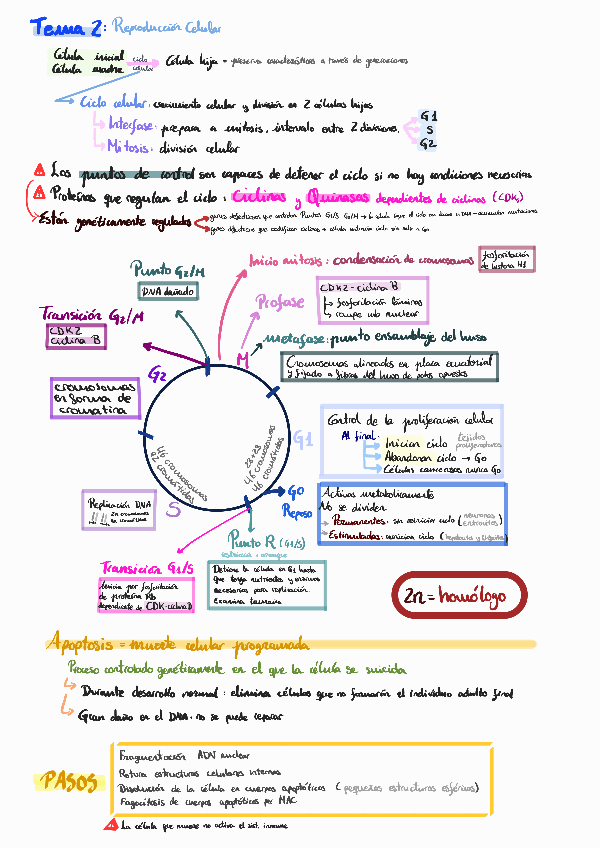 Tema 2: Reproducción Celular
Célula inicial
Célula madre
ciclo
celular
Célula hija = preserva características a través de generaciones
Ciclo celular: crecimiento celular y división en 2 células hijas
Interfase: prepara a mitosis, intervalo entre 2 divisiones
G1
S
G2
Mitosis: división celular
Los puntos de control son capaces de detener el ciclo si no hay condiciones necesarias
Proteínas que regulan el ciclo: Ciclinas y Quinasas dependientes de ciclinas (CDKs)
Están genéticamente regulados
genes defectuosos que controlan Puntos G1/S G2/M
Inicio mitosis: condensación de cromosomas
fosforilación
de histona H1
Punto G2/M
DNA dañado
Profase
CDK2-ciclina B
fosforilación láminas
rompe nucleo nuclear
Transición G2/M
CDK2
ciclina B
M
metafase: punto ensamblaje del huso
Cromosomas alineados en placa ecuatorial
y fijado a fibras del huso de polos opuestos
G2
cromosomas
en forma de
cromatina
G1
46 cromosomas
92 cromátidas
23+23
46 cromosomas
46 cromátidas
Control de la proliferación celular
Al final:
Inician ciclo
tejidos
proliferativos
Abandonan ciclo → G0
Células cancerosas nunca G0
S
Replicación DNA
G0
Reposo
Activas metabólicamente
No se dividen
Permanentes: sin reiniciar ciclo (neuronas
eritrocitos)
Estimuladas: reinician ciclo (hepatocito y linfocito)
Punto R (G1/S)
restricción o arranque
Detiene la célula en G1 hasta
que tenga nutrientes y enzimas
necesarias para replicación.
Examina tamaño
Transición G1/S
Inicia por fosforilación
de proteína Rb
dependiente de CDK-ciclina D
2n = homólogo
Apoptosis = muerte celular programada
Proceso controlado genéticamente en el que la célula se suicida
Durante desarrollo normal: elimina células que no formarán el individuo adulto final
Gran daño en el DNA: no se puede reparar
PASOS
Fragmentación ADN nuclear
Rotura estructuras celulares internas
Disolución de la célula en cuerpos apoptóticos (pequeñas estructuras esféricas)
Fagocitosis de cuerpos apoptóticos por MAC
La célula que muere no activa el sist. inmune